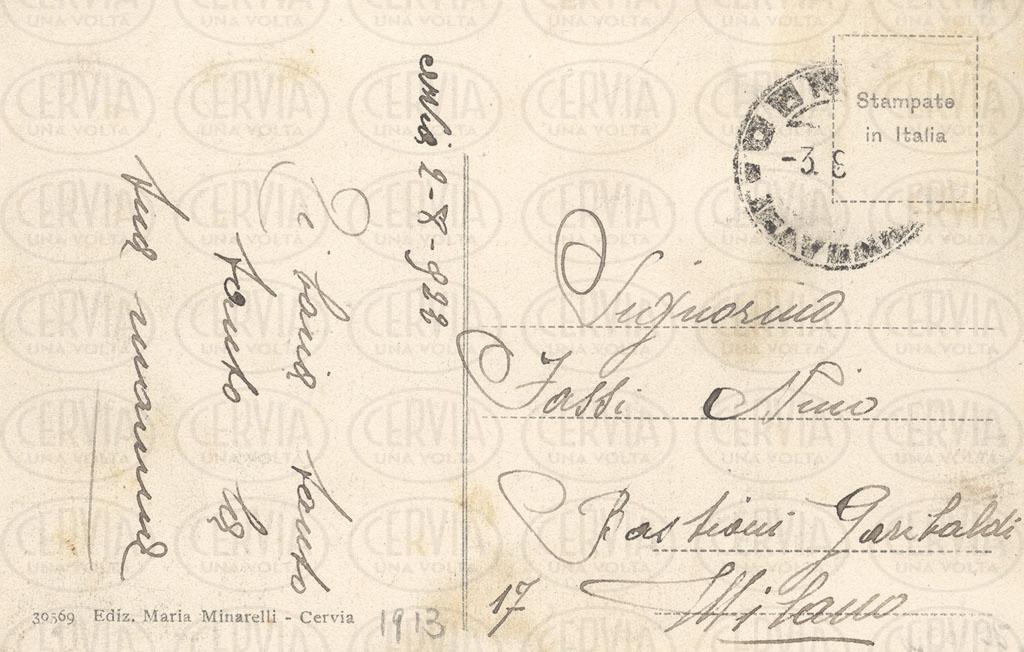 Cervia 2-8-922
Ti bacia tanto
tanto la
tua mamma
Stampate
in Italia
-3. 8
Signorino
Fossi Nino
Bastioni Garibaldi
17 Milano
30569 Ediz. Maria Minarelli - Cervia
1913
CERVIA
UNA VOLTA